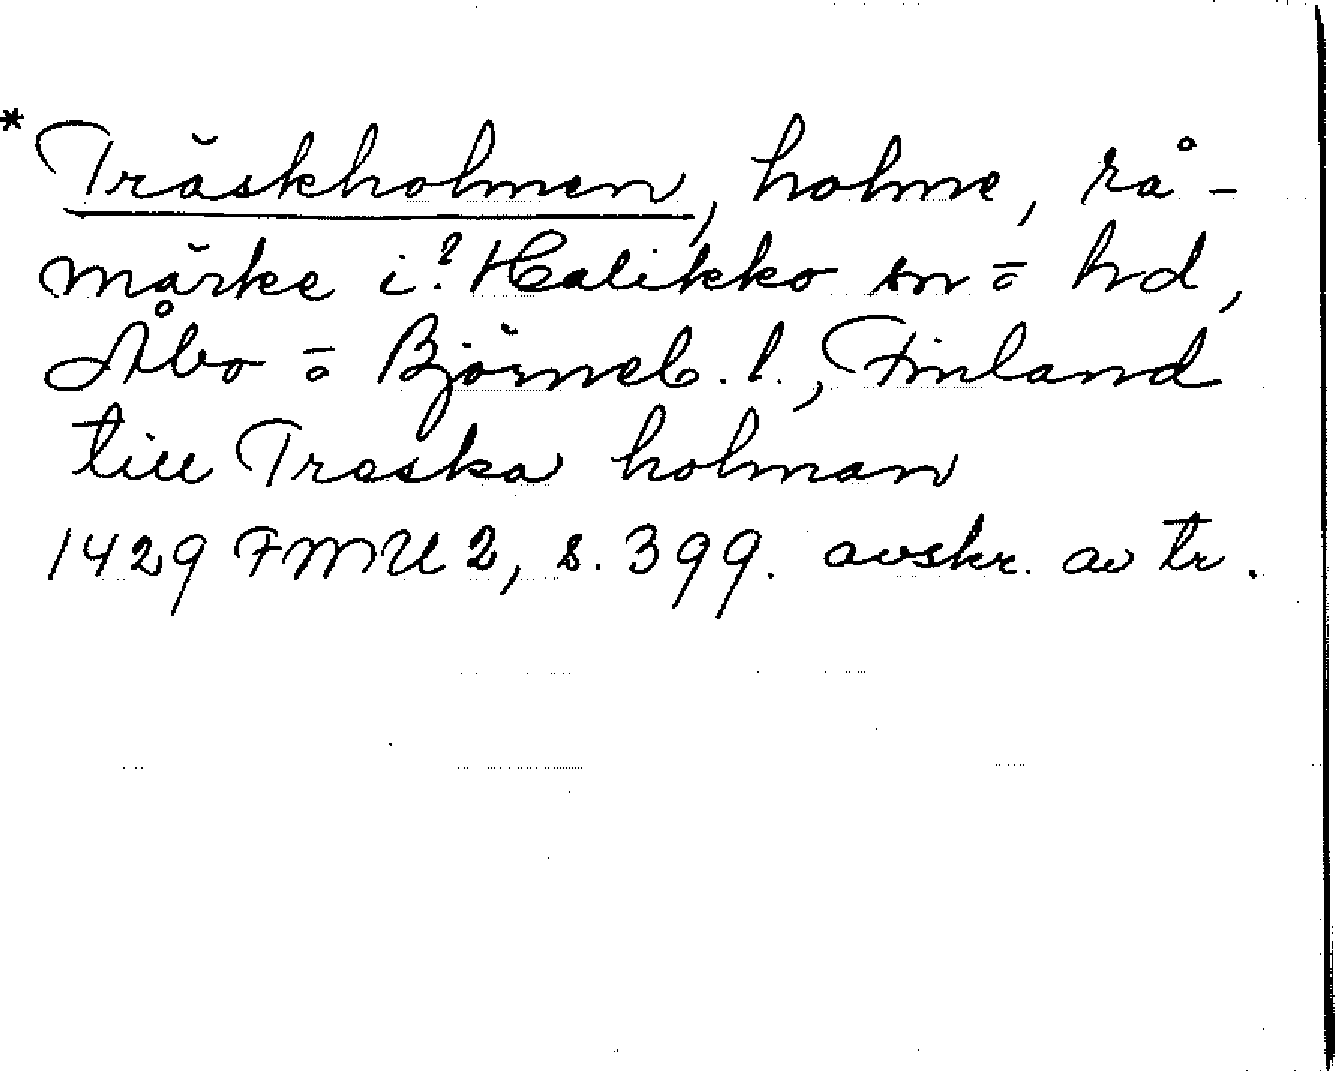 * Träskholmen, holme, rå-
märke i? Halikko sn o hd,
Åbo o Björneb. l., Finland
till Treska holman
1429 FMU 2, s. 399. avskr. av tr.